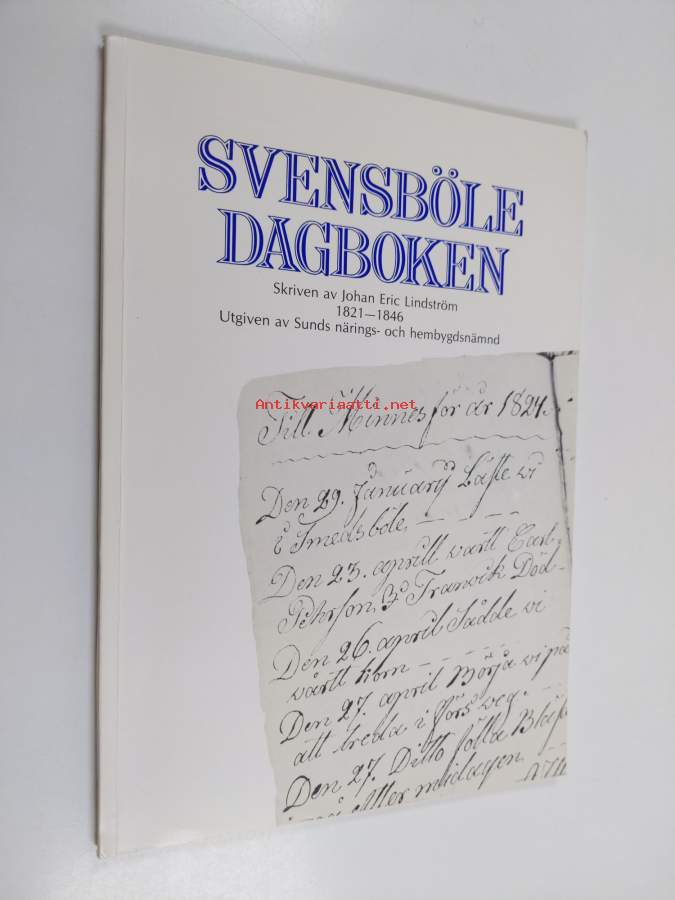 SVENSBÖLE
DAGBOKEN
Skriven av Johan Eric Lindström
1821—1846
Utgiven av Sunds närings- och hembygdsnämnd
Antikvariaatti.net
Till Minnes för år 1824.
Den 29. January Läste vi
i Smedsböle
Den 23. aprill wartt Carl
Pehrson, Tranvik Död
Den 26. april Sådde vi
vårtt korn
Den 27. april Börja vi på
att breda i Förs weg.
Den 27. Ditto fölla Bläs
Atter midagen